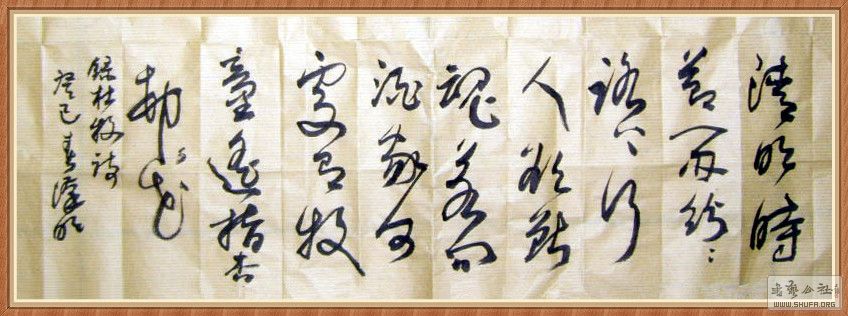 清明時
節雨紛〻
路上行
人欲斷
魂若问
酒家何
處有牧
童遙指杏
村花
錄杜牧詩
癸巳春
书艺公社
WWW.SHUFA.ORG